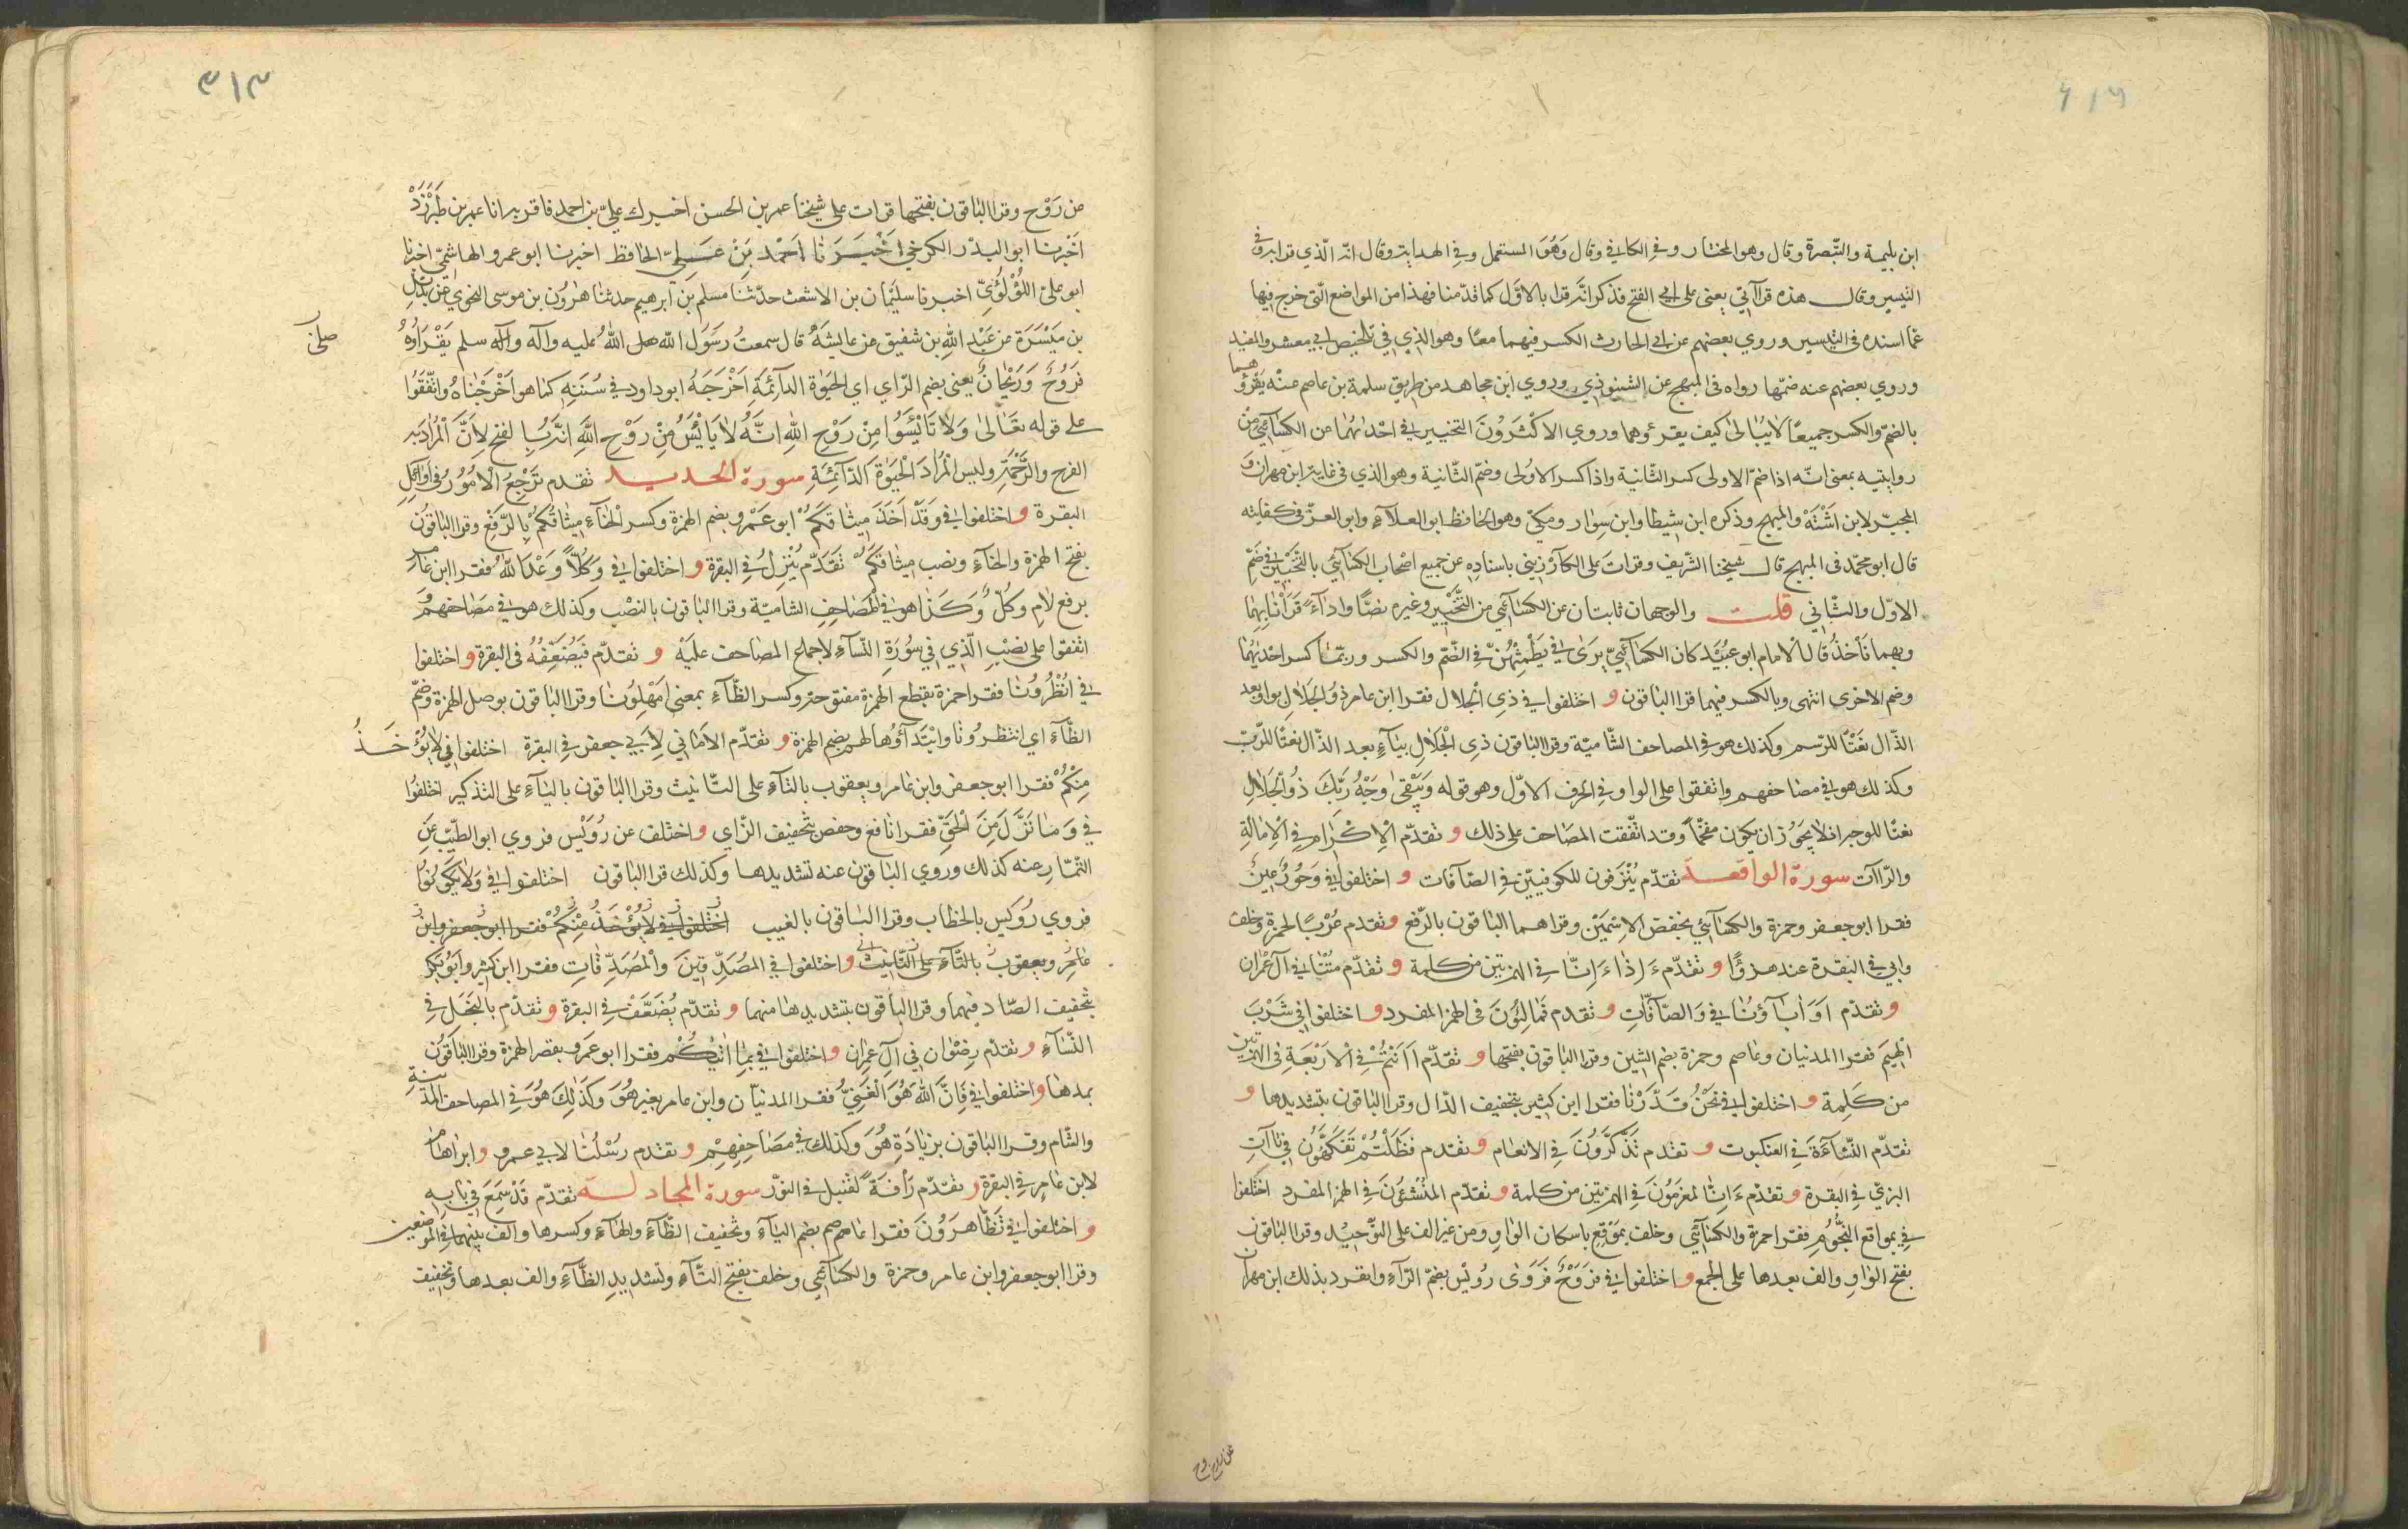 ابن بليمة والتبصرة وقال وهو المختار وفي الكافي وقال وَهُوَ المستعمل وفي الهداية وقال انه الّذي قرا به في
التيسير وقال هذه قراآتي يعني على ابي الفتح فذكر انّه قرا بالاوّل كما قدّمنا فهذا من المواضع الّتي خرج فيها
عمّا اسنده في التيسير وروي بعضهم عن ابي الحارث الكسر فيهما معًا وهو الذي في تلخيص ابي معشر والمفيد
وروي بعضهم عنه ضمّها رواه في المبهج عن الشنبوذي وروي ابن مجاهد من طريق سلمة بن عاصم عنه يقرؤهما
بالضمّ والكسر جميعًا لا يبالي كيف يقرؤهما وروي الاكثَرُونَ التخيير في احْداهُما عن الكسآئيّ من
روايتيه بمعنى انّه اذا ضمّ الاولى كسر الثّانية واذا كسر الاولى وضمّ الثّانية وهو الذي في غاية ابن مهران وَ
المحبّر لابن اَشْتَهْ والمبهج وذكره ابن شيطا وابن سِوار ومكيّ وهو الحافظ ابو العلآء وابو العزّ في كفايته
قال ابو محمّد في المبهج قال شيخنا الشّريف وقراتُ على الكارَزيني باسناده عن جميع اصْحاب الكسآئيّ بالتّخيير في ضمّ
الاوّل والثّاني قلت والوجهان ثابتان عن الكسآئيّ من التّخيير وغيره نصًّا واداءً قرَأْنا بِهِما
وبهما نَأخذُ قال الامام ابو عُبيد كان الكسآئيّ يرَى في يَطْمِثْهُنّ في الضّم والكسر وربّما كسر احْديهُما
وضم الاخرى انتهى وبالكسر فيهما قرا الباقون و اختلفوا في ذي الجلال فقرا ابن عامر ذُو الجَلالِ بواو بعد
الذّال نَعْتًا للاسم وكذلك هو في المصاحف الشّاميّة وقرا الباقون ذي الجَلالِ بيآءٍ بعد الذّال نعتًا للرّبّ
وكذلك هو في مصاحفهم واتفقوا على الواو في الحَرف الاوّل وهو قوله وَيَبْقَى وَجْهُ رَبِّكَ ذُو الْجَلَالِ
نعتًا للوجه اذ لا يَجُوز ان يكون مقحمًا وقد اتّفقت المصاحف على ذلك و تقدّم الْإكْرَام في الْإمالةِ
والرّاآت سورة الواقعة تقدّم يُنْزِفون للكوفييّن في الصّآفات و اختلفوا في وَحُورٌ عِينٌ
فقرا ابو جعفر وحمزة والكسآئيّ بخفض الاِسْمَيْن وقراهما الباقون بالرّفع و تقدم عُرْبًا لحمزة وخلف
وابي في البقرة عند هزؤًا و تقدّم ءَاِذاءَ اِنّا في الهمزتين من كلمة و تقدّم مُتْنا في آل عمْران
و تقدّم اَوَ اٰبَاؤُنا في وَالصّآفّاتِ و تقدم فَمَالِئُونَ في الهمز المفرد و اختلفوا في شَرْبَ
الْهِيمِ فقرا المدنيان وعاصم وحمزة بضم الشين وقرا الباقون بفتحها و تقدّم اَاَنْتُمْ في الْاَرْبَعَةِ في الهمزتين
من كَلِمة و اختلفوا في نَحْنُ قَدَّرْنا فقرا ابن كثير بتخفيف الدّال وقرا الباقون بتشديدها و
تقدّم النَّشْأَةَ في العنكبوت و تقدم تَذَكَّرُونَ في الانعام و تقدم فَظَلْتُمْ تَفَكَّهُونَ في تاآت
البزيّ في البقرة و تقدّم ءَاِنّا لمغرَمُونَ في الهمزتين من كلمة و تقدّم المُنْشئُونَ في الهمز المفرد اختلفوا
في بِمَواقع النُّجُومِ فقرا حمزة والكسآئيّ وخلف بمَوْقِعِ باسكان الواوِ ومن غير الف على التّوحِيد وقرا الباقون
بفتح الواوِ والف بعدها على الجمع و اختلفوا في فَرَوْحٌ فَرَوَى رُوَيْس بضمّ الرّآء وانفرد بذلك ابن مهران
عن روح
٣١٣
عن رَوْح وقرا الباقون بفتحها قرات على شيخنا عمر بن الحسن اخبرك عليّ بن احمد فاقر به انا عمر بن طَبَرْزَدْ
اَخْبرنا ابو البدْر الكرخي اَخْبَرَنَا اَحْمَد بْن عَلِيّ الحافظ اخبرنا ابو عمرو الهاشميّ اخبرنا
ابو عليّ اللُؤْلُؤيّ اخبرنا سليْمان بن الاشعث حدّثنا مسلم بن ابرهيم حدثنا هٰرُون بن موسى النحوي عن بُدَيْلِ
بن مَيْسَرَة عن عَبْد اللهِ بن شقيق عن عائشةُ قال سمعتُ رسُولَ اللّه صلى اللهُ عليه وآله وآله سلم يَقْرَاُوهُ
فَرُوحٌ وَرَيْحانٌ يعني بضم الرّاي اي الحيٰوة الدآئِمَةِ اَخْرَجَهُ ابو داود في سُنَنِه كما هو اَخْرَجْناهُ واتّفَقُوا
على قوله تعَالىٰ وَلَا تَايْئَسُوا مِنْ رَوْحِ اللّهِ انّهُ لَا يَايْئَسُ مِنْ رَوْحِ اللّهِ انّه بالفتح لِاَنَّ الْمُرادَ به
الفرح والرّحْمَة وليس المُرادَ الْحَيٰوة الدّآئِمَةِ سورة الحديد تقدم تَرْجِعُ الْاُمُورُ في اوآئلِ
البقرة و اختلفوا في وَقَدْ اَخَذَ مِيثاقَكُمْ ابو عَمْرو بضم الهمزة وكسر الخآءِ ميثاقُكُمْ بالرّفع وقرا الباقون
بفتح الهمزة والخآء ونصب ميثاقَكُمْ تَقدّم يُنْزِلُ في البقرة و اختلفوا في وَكُلًّا وَعَدَ اللّهُ فقرا ابن عامر
برفع لام وكُلٌّ وكَذا هو في المَصَاحِفِ الشاميّة وقرا الباقون بالنصْب وكذلك هو في مَصَاحفهم وَ
اتفقوا على نصْبِ الّذي في سُورَةِ النّسآءِ لاجماع المصاحف عليْهِ و تقدّم فَيُضَعِّفُهُ في البقرة و اختلفوا
في انْظُرُونا فقرا حمزة بقطع الهمزة مفتوحة وكسر الظّآء بمعنى اَمْهِلُونا وقرا الباقون بوصل الهمزة وضمّ
الظّآء اي انتظرُونا وابْتدآؤُها لهم بضم الهمزة و تقدّم الاَمانِي لِاَبِي جعفر في البقرة اختلفوا في لا يُؤْخَذُ
مِنْكُمْ فقرا ابو جعفر وابن عامر ويعقوب بالتآء على التّانيث وقرا الباقون باليآء على التذكير اختلفُوا
في وَمَا نَزَّلَ مِنَ الْحَقِّ فقرا نافع وحفص بتخفيف الزّاي و اختلف عن رُوَيْس فروي ابو الطّيّب عَنِ
التّمّار عنه كذلك وروي الباقون عنه تشديدها وكذلك قرا الباقون اختلفوا في وَلَا يَكُونُوا
فروي رُوَيْس بالخطاب وقرا الباقون بالغيب اختلفوا في لَا يُؤْخَذُ مِنْكُمْ فقرا ابو جعفر وابن
عامر ويعقوب بالتآء على التّانيث و اختلفوا في المُصَدِّقِينَ والْمُصَدِّقاتِ فقرا ابن كثير وابو بكر
بتخفيف الصّاد فيهما وقرا الباقون بتشديدها منهما و تقدّم يُضَعَّفْ في البقرة و تقدّم بالبَخَل في
النّسآءِ و تقدّم رِضْوان في آل عمْران و اختلفوا في بِمَا اٰتيٰكُمْ فقرا ابو عمرو بقصر الهمزة وقرا الباقون
بمدها و اختلفوا في فَاِنَّ اللّهَ هُوَ الْغَنِيُّ فقرا المدنيّان وابن عامر بغير هُوَ وكَذلِكَ هُوَ في المصاحف المدنيّة
والشّام وقرا الباقون بزيادَةِ هُوَ وكذلك في مصَاحِفِهِمْ و تقدم رُسْلُنا لابي عمرو و ابراهام
لابن عامر في البقرة و تقدّم رَأفَةً لقنبل في النّور سورة المجادلة تقدّم قَدْ سَمِعَ في بابه
و اختلفوا في تظَّاهرُونَ فقرا عاصم بضم اليآء وتخفيف الظّآء والهآء وكسرها والف بينهما في الموضعين
وقرا ابو جعفر وابن عامر وحمزة والكسآئيّ وخلف بفتح التّآءِ وتشديدِ الظّآءِ والف بعدها وتخفيف